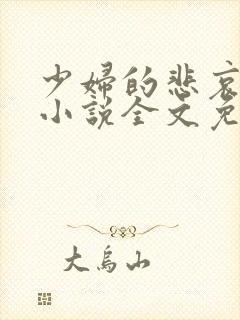 少婦的悲哀
小說全文免
大烏山